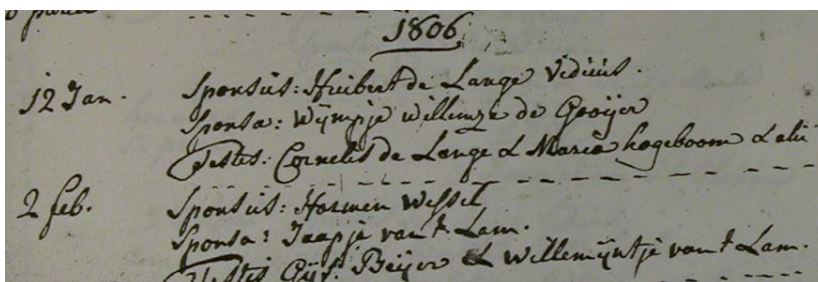 1806
12 Jan. Sponsus: Huibert de Lange Viduus.
Sponsa: Wijmpje Willemze de Gooijer
Testes: Cornelis de Lange & Maria hogeboom & alii
2 feb. Sponsus: Harmen Wessel
Sponsa: Jaapje van t. Lam.
Testes Gijs: Beijer & Willemijntje van t Lam.